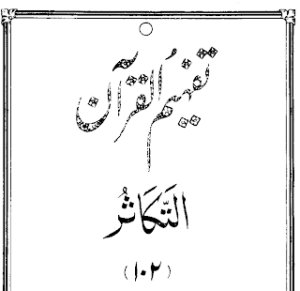 تفہیم القرآن
التَّكَاثُرُ
(۱۰۲)